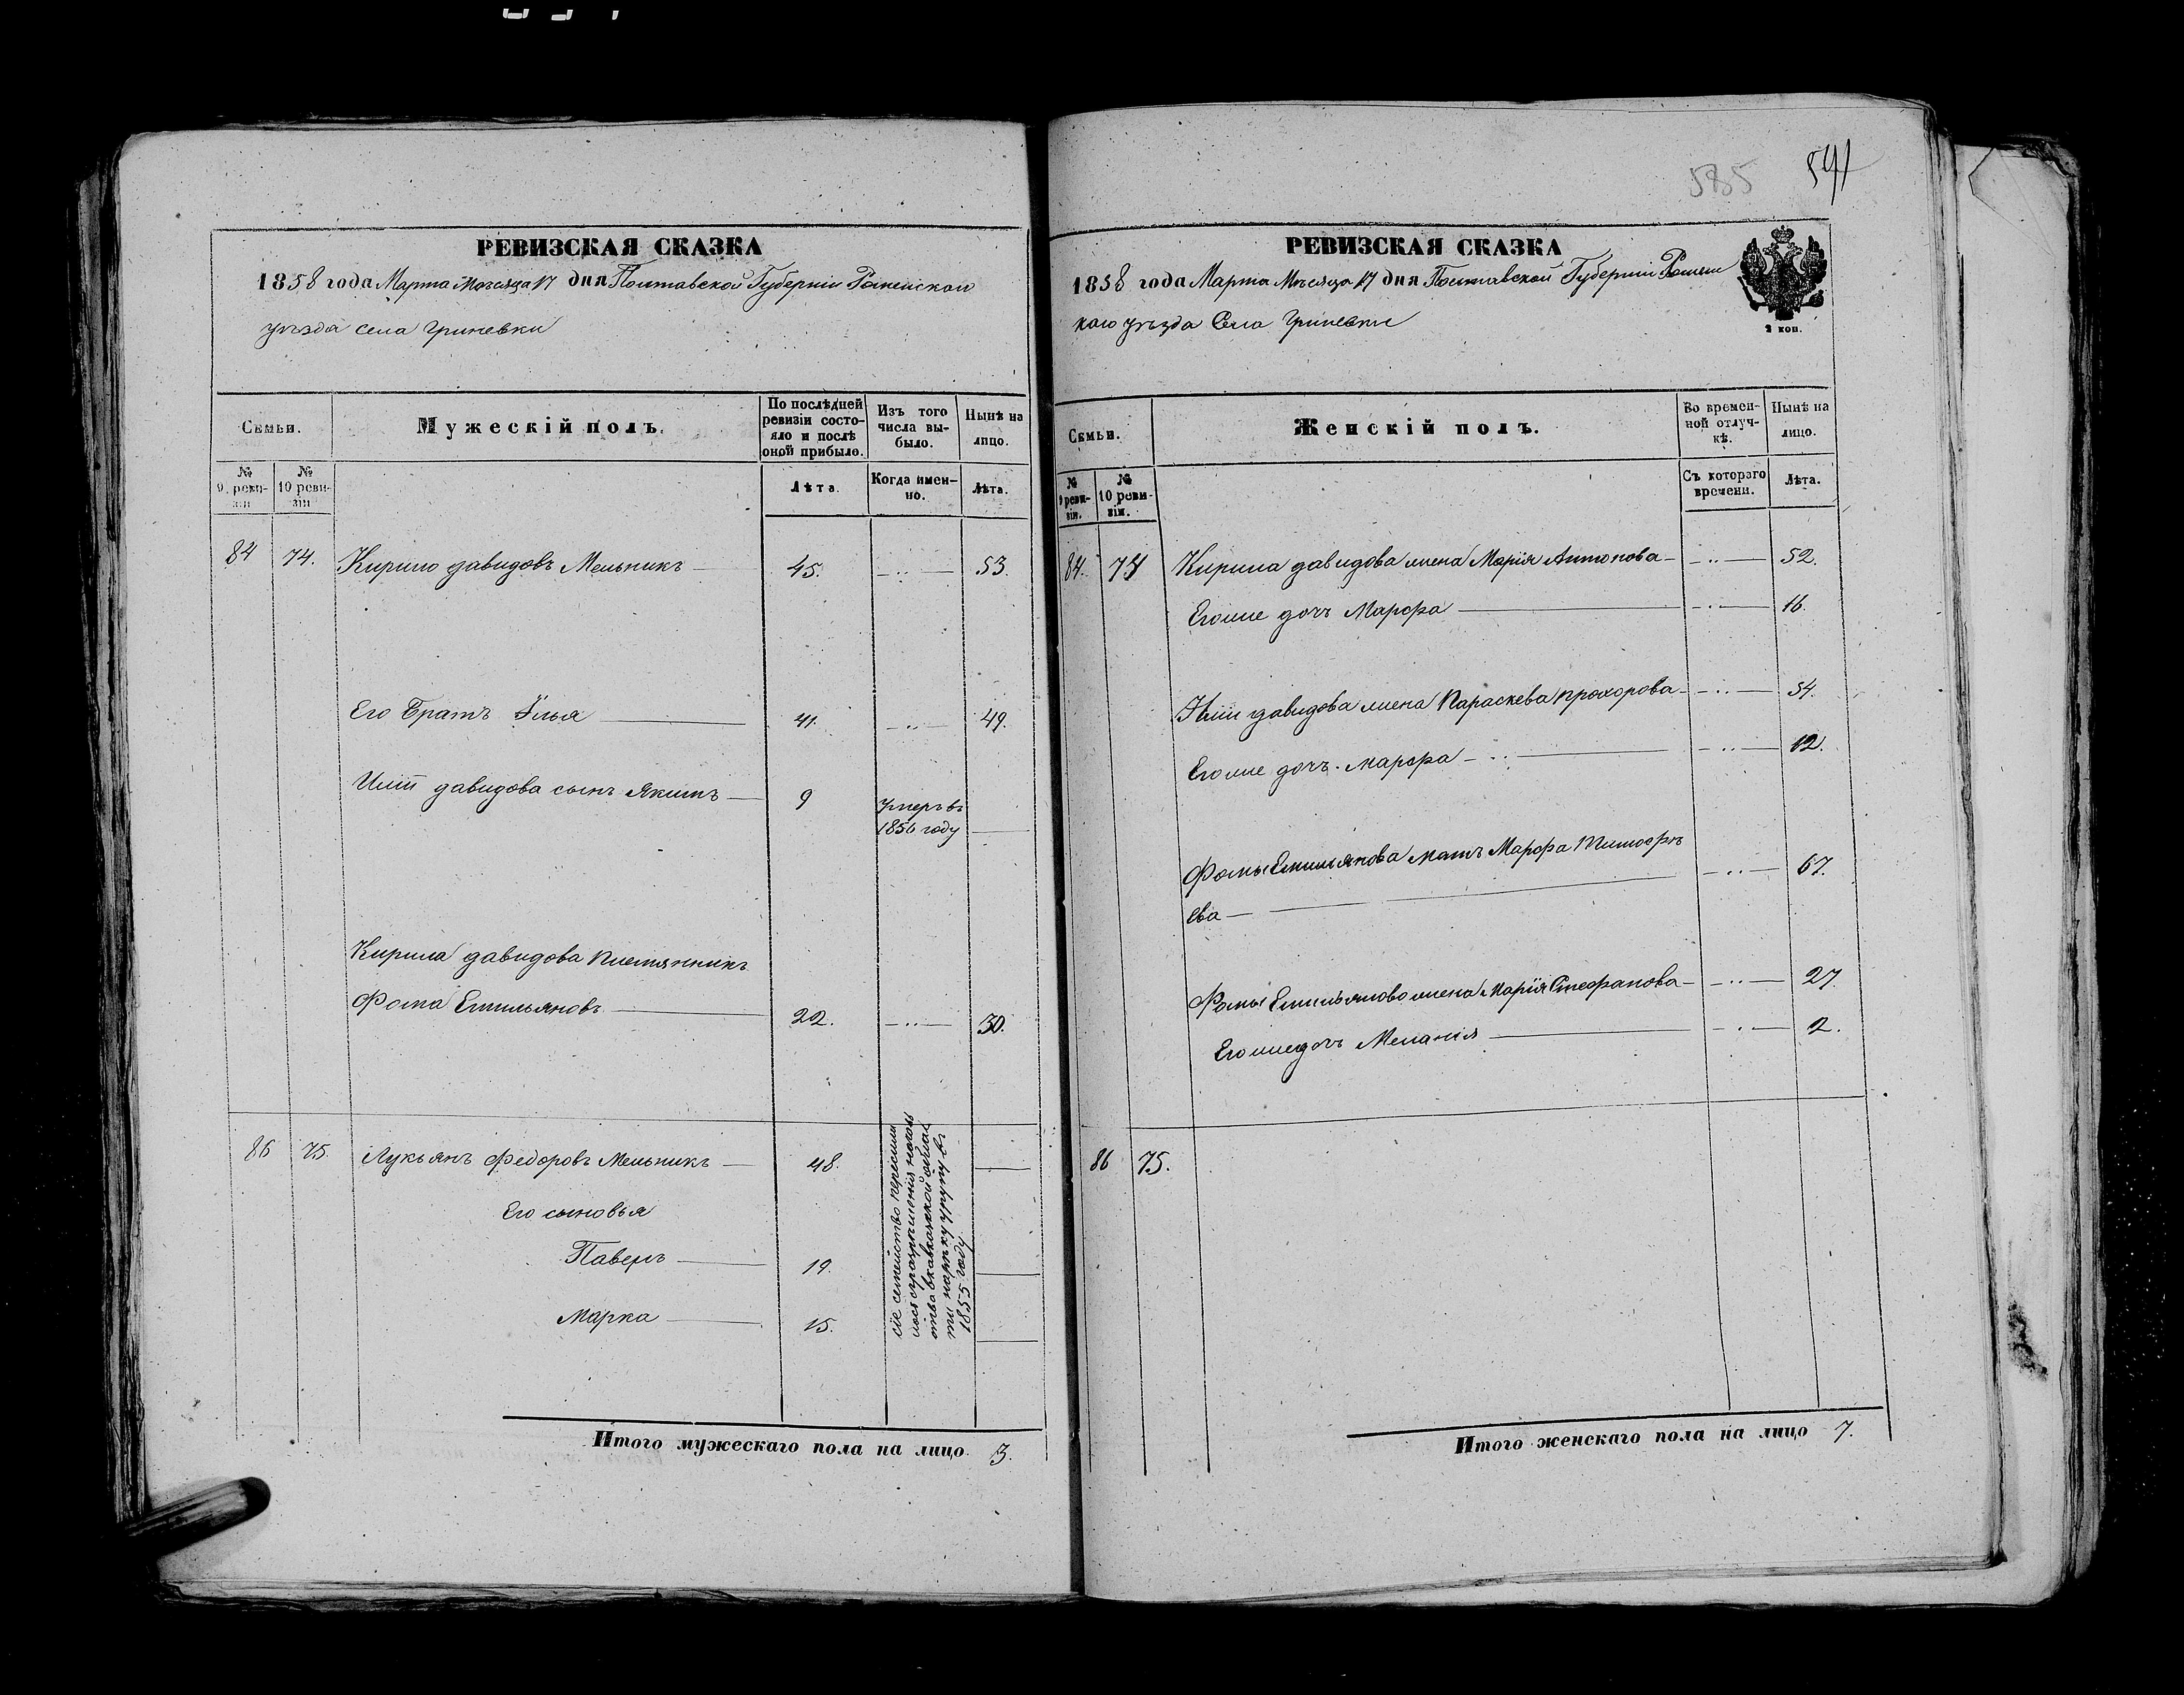 585 541
РЕВИЗСКАЯ СКАЗКА
1858 года Марта Месяца 17 дня Полтавской Губерніи Роменскаго
уѣзда села Гриневки
Семьи.
Мужескій полъ.
По послѣдней ревизіи состояло и послѣ оной прибыло.
Изъ того числа выбыло.
Нынѣ на лицо.
№ 9 ревизіи
№ 10 ревизіи
Лѣта.
Когда именно.
Лѣта.
84 74. Кирило давидовъ Мельникъ 45. 53.
Его Братъ Илья 41. 49.
Иліи давидова сынъ Якимъ 9 умеръ въ
1856 году
Кирила давидова племянникъ
Фома Емильяновъ 22. 30.
86 75. Лукьянъ Федоровъ Мельникъ 48.
Его сыновья
Павелъ 19.
Марка 15.
сіе семейство пересели
1855 году
Итого мужескаго пола на лицо 3.
РЕВИЗСКАЯ СКАЗКА
1858 года Марта Месяца 17 дня Полтавской Губерніи Роменс
каго уѣзда Села Гриневки
2 коп.
Семьи.
Женскій полъ.
Во временной отлучкѣ.
Нынѣ на лицо.
№ 9 ревизіи.
№ 10 ревизіи.
Съ котораго времени.
Лѣта.
84. 74 Кирила давидова жена Марія Антонова 52.
Егоже дочь Марфа 16.
Иліи давидова жена Параскева прохорова 54.
Егоже дочь Марфа 12.
Фомы Емильянова мать Марфа Тимофѣ
ева 67.
Фомы Емильянова жена Марія Стефанова 27.
Егоже дочь Меланія 2.
86 75.
Итого женскаго пола на лицо 7.